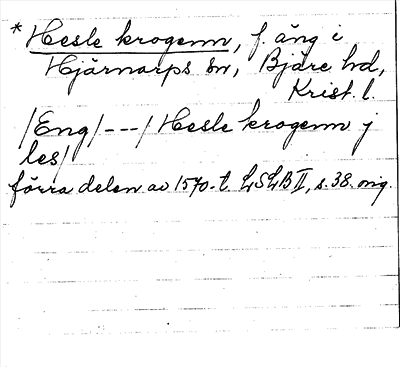 * Hesle krogenn, f. äng i
Hjärnarps sn, Bjäre hd,
Krist. l.
/Eng/ --- / Hesle krogenn j
les/
förra delen av 1570-t. LSLB II, s. 38. orig.